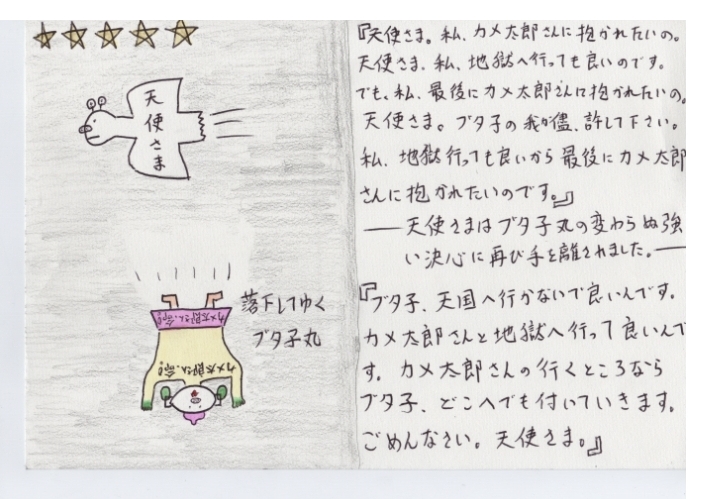 天使さま
落下してゆく
ブタ子丸
カメ太郎さん、命!
カメ太郎さん、命!
『天使さま。私、カメ太郎さんに抱かれたいの。
天使さま、私、地獄へ行っても良いのです。
でも、私、最後にカメ太郎さんに抱かれたいの。
天使さま。ブタ子の我が儘、許して下さい。
私、地獄行っても良いから最後にカメ太郎
さんに抱かれたいのです。』
――天使さまはブタ子丸の変わらぬ強
い決心に再び手を離されました。――
『ブタ子、天国へ行かないで良いんです。
カメ太郎さんと地獄へ行って良いんで
す。カメ太郎さんの行くところなら
ブタ子、どこへでも付いていきます。
ごめんなさい。天使さま。』